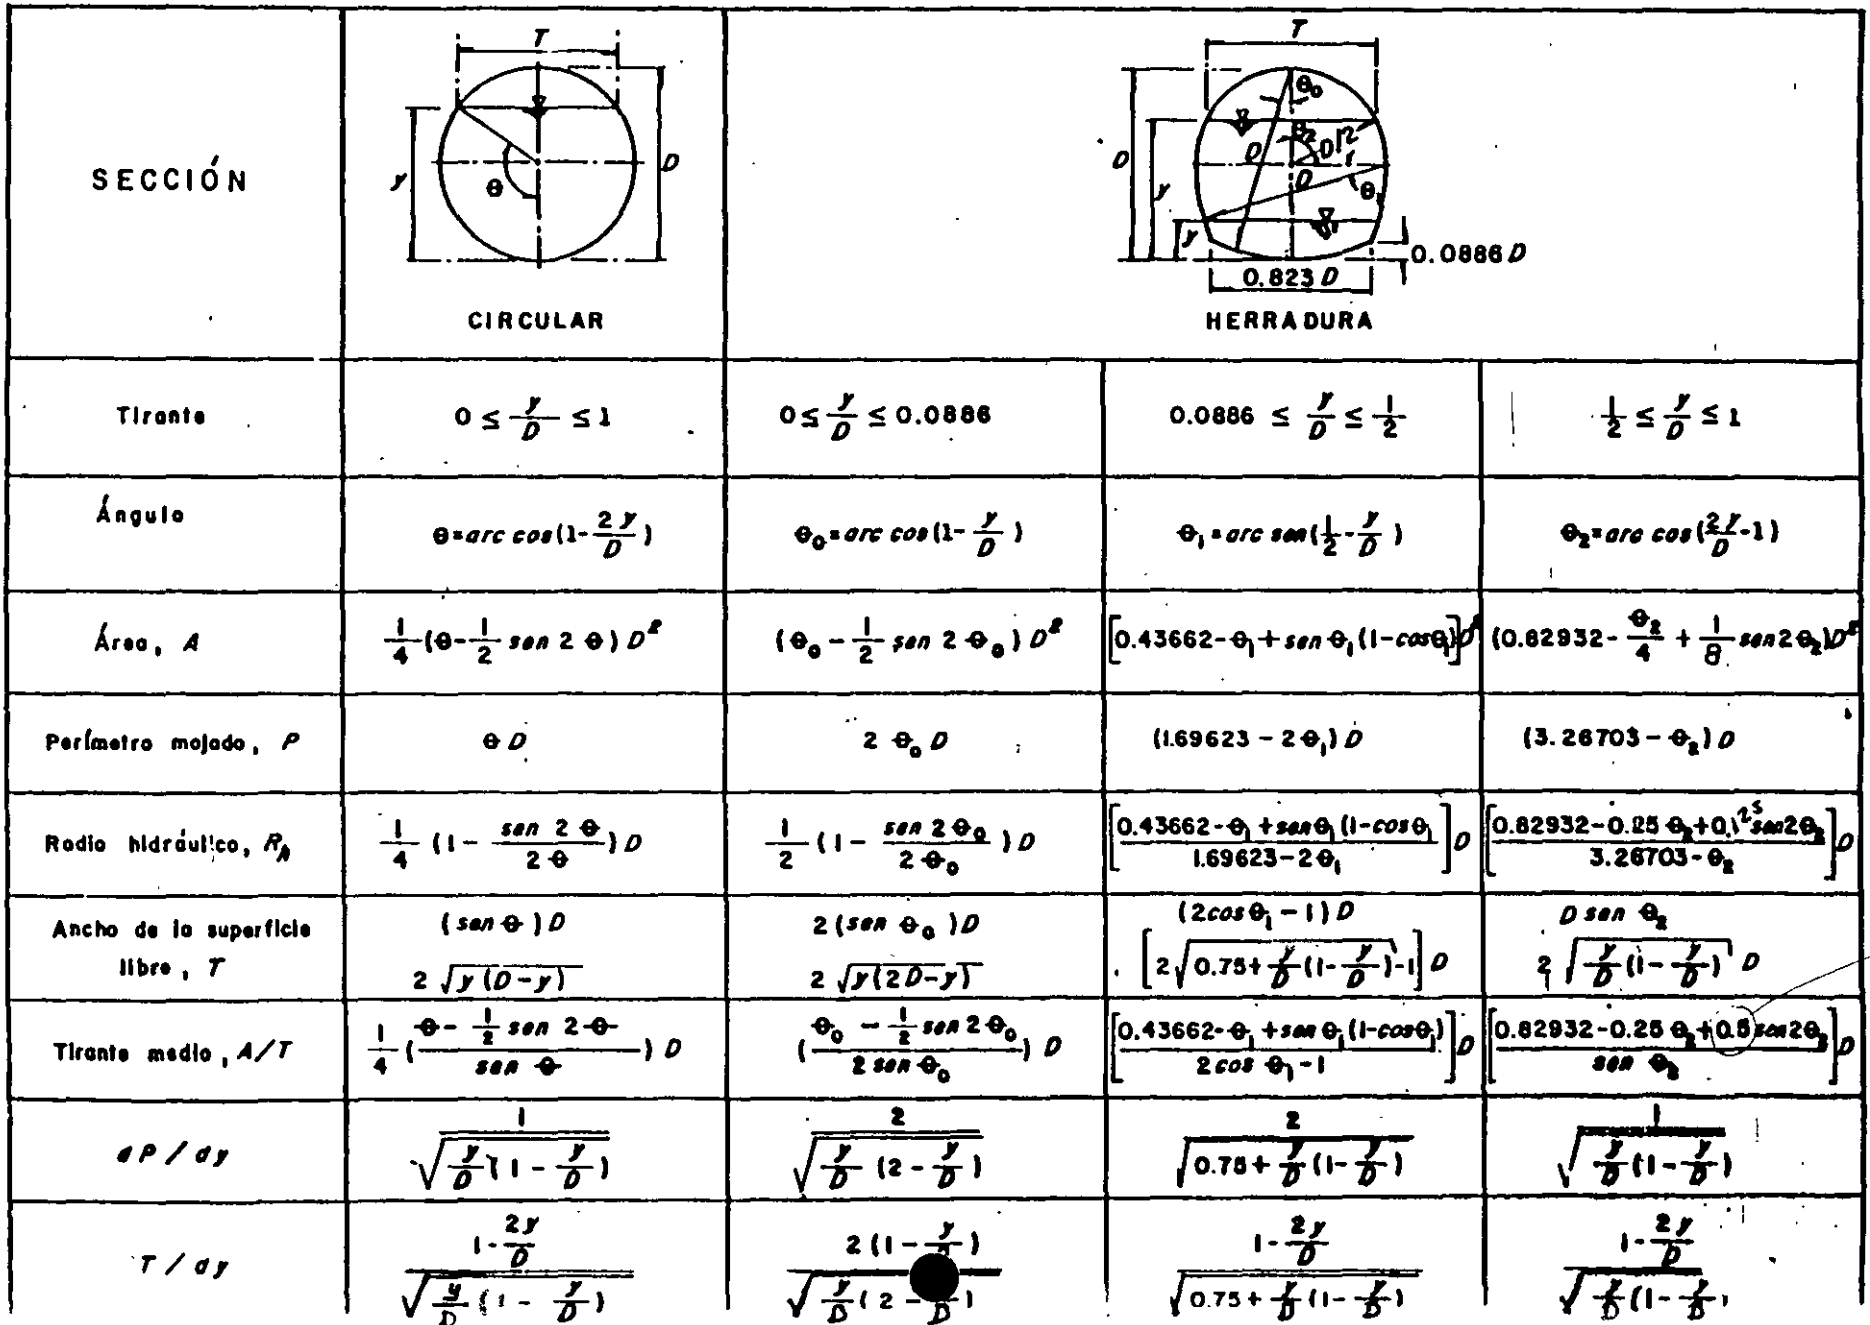 SECCIÓN
T
D
y
θ
CIRCULAR
T
D
y
y
θ₀
θ₂
D/2
D
D
θ₁
0.0886 D
0.823 D
HERRADURA
Tirante
0 ≤ y/D ≤ 1
0 ≤ y/D ≤ 0.0886
0.0886 ≤ y/D ≤ 1/2
1/2 ≤ y/D ≤ 1
Ángulo
θ = arc cos(1 - 2y/D)
θ₀ = arc cos(1 - y/D)
θ₁ = arc sen(1/2 - y/D)
θ₂ = arc cos(2y/D - 1)
Área, A
1/4 (θ - 1/2 sen 2 θ) D²
(θ₀ - 1/2 sen 2 θ₀) D²
[0.43662 - θ₁ + sen θ₁ (1 - cos θ₁)] D²
(0.82932 - θ₂/4 + 1/8 sen 2 θ₂) D²
Perímetro mojado, P
θ D
2 θ₀ D
(1.69623 - 2 θ₁) D
(3.26703 - θ₂) D
Radio hidráulico, Rₕ
1/4 (1 - sen 2 θ / 2 θ) D
1/2 (1 - sen 2 θ₀ / 2 θ₀) D
[0.43662 - θ₁ + sen θ₁ (1 - cos θ₁ / 1.69623 - 2 θ₁] D
[0.82932 - 0.25 θ₂ + 0.125 sen 2 θ₂ / 3.26703 - θ₂] D
Ancho de la superficie
libre, T
(sen θ) D
2 √y (D - y)
2 (sen θ₀) D
2 √y (2D - y)
(2 cos θ₁ - 1) D
[2 √0.75 + y/D (1 - y/D) - 1] D
D sen θ₂
2 √y/D (1 - y/D) D
Tirante medio, A/T
1/4 (θ - 1/2 sen 2 θ / sen θ) D
(θ₀ - 1/2 sen 2 θ₀ / 2 sen θ₀) D
[0.43662 - θ₁ + sen θ₁ (1 - cos θ₁) / 2 cos θ₁ - 1] D
[0.82932 - 0.25 θ₂ + 0.5 sen 2 θ₂ / sen θ₂] D
dP / dy
1 / √y/D (1 - y/D)
2 / √y/D (2 - y/D)
2 / √0.75 + y/D (1 - y/D)
1 / √y/D (1 - y/D)
T / dy
1 - 2y/D / √y/D (1 - y/D)
2 (1 - y/ ) / √y/D (2 - y/D)
1 - 2y/D / √0.75 + y/D (1 - y/D)
1 - 2y/D / √y/D (1 - y/D)